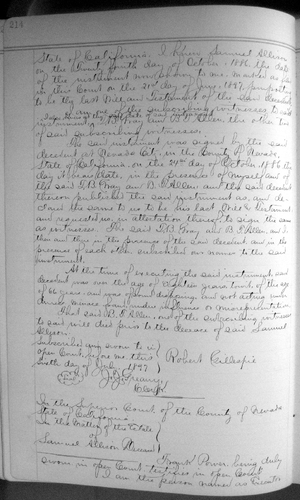 214
State of California. I knew Samuel Allison
on the twenty fourth day of October 1886. the date
of the instrument now shown to me marked as filed
in this Court on the 21st day of June 1897, purporting
to be the last Will and Testament of the said Decedent
I am one of the subscribing witnesses to said
instrument. and B. P. Allen the other
of said subscribing witnesses.
The said instrument was signed by the said
decedent at Nevada City, in the County of Nevada,
State of California, on the 24th day of October 1886 the
day it bears date, in the presence of myself and of
the said and B. P. Allen, and the said decedent
thereupon published the said instrument as, and de-
clared the same to us to be his last Will & Testament
and requested us, in attestation thereof, to sign the same
as witnesses. The said and B. P. Allen and I
then and there in the presence of the said decedent and in the
presence of each other, subscribed our names to the said
instrument.
At the time of executing the said instrument, said
decedent was over the age of eighteen years to wit of the age
of 66 years and was of sound mind and not acting under
duress menace fraud undue influence or misrepresentation
That said B. P. Allen, one of the subscribing witnesses
to said will died prior to the decease of said Samuel
Allison.
Subscribed and sworn to in
open Court, before me this
day of July 1897
Robert Gillespie
Clerk
In the Superior Court of the County of Nevada
State of California
In the Matter of the Estate
of
Samuel Allison Deceased
Frank Power, being duly
sworn in open Court, testifies in open Court
I am the person named as Executor